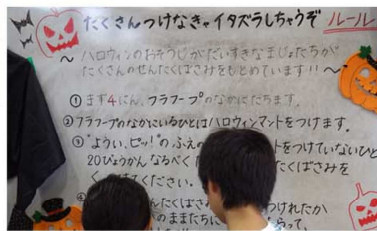 たくさんつけなきゃイタズラしちゃうぞ ルール
〜 ハロウィンのおそうじがだいすきなまじょたちが
たくさんのせんたくばさみをもとめています!! 〜
① まず4にん、フラフープのなかにたちます。
②フラフープのなかにいるひとはハロウィンマントをつけます。
③"ようい、ピッ!"のふえの トをつけていないひと
20びょうかん なるべく たくばさみを
ください。
④ んたくばさ つけれたか
のままたちに って、